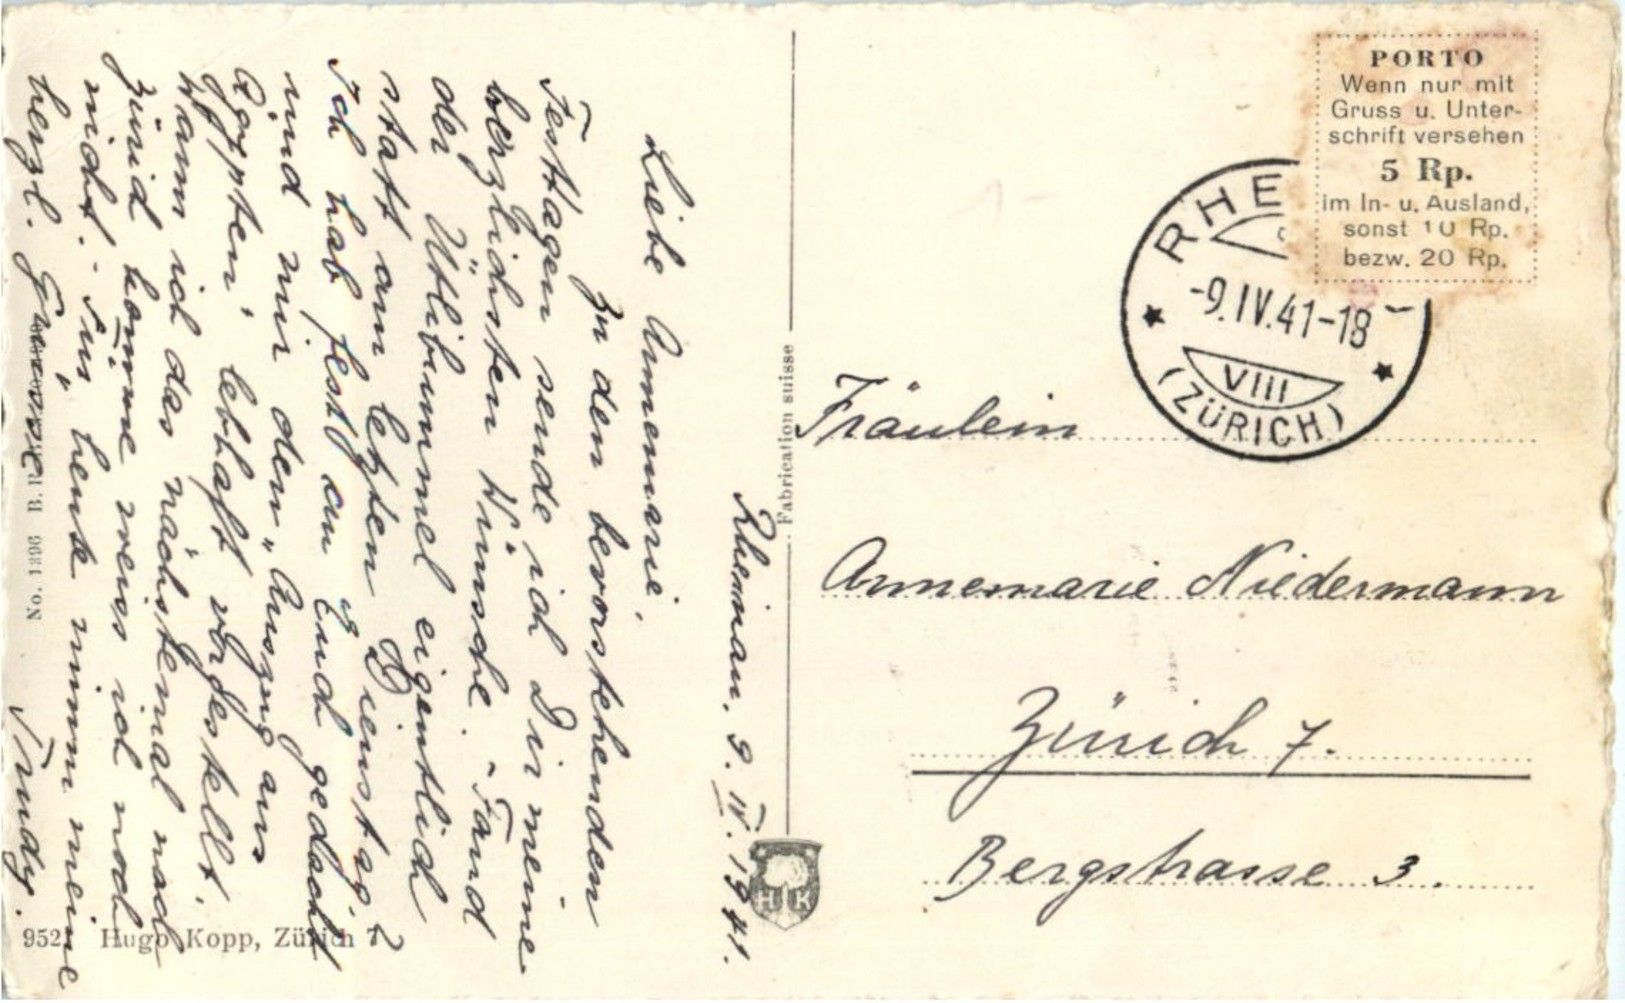 Rheinau, 9. IV. 1941.
Liebe Annemarie,
Zu den bevorstehenden
Festtagen sende ich Dir meine
herzlichsten Wünsche. Fand
der Ütlibummel eigentlich
statt am letzten Dienstag?
Ich hab fest an Euch gedacht
und mir den „Auszug aus
Egypten" lebhaft vorgestellt.
Wann ich das nächstemal nach
Zürich komme weiss ich noch
nicht. Für heute nimm meine
herzl. Grüsse Trudy.
No. 1396
9521 Hugo Kopp, Zürich 7
Fabrication suisse
HK
PORTO
Wenn nur mit
Gruss u. Unter-
schrift versehen
5 Rp.
im In- u. Ausland,
sonst 10 Rp.
bezw. 20 Rp.
RHE
-9.IV.41-18
VIII
(ZÜRICH)
Fräulein
Annemarie Niedermann
Zürich 7.
Bergstrasse 3.